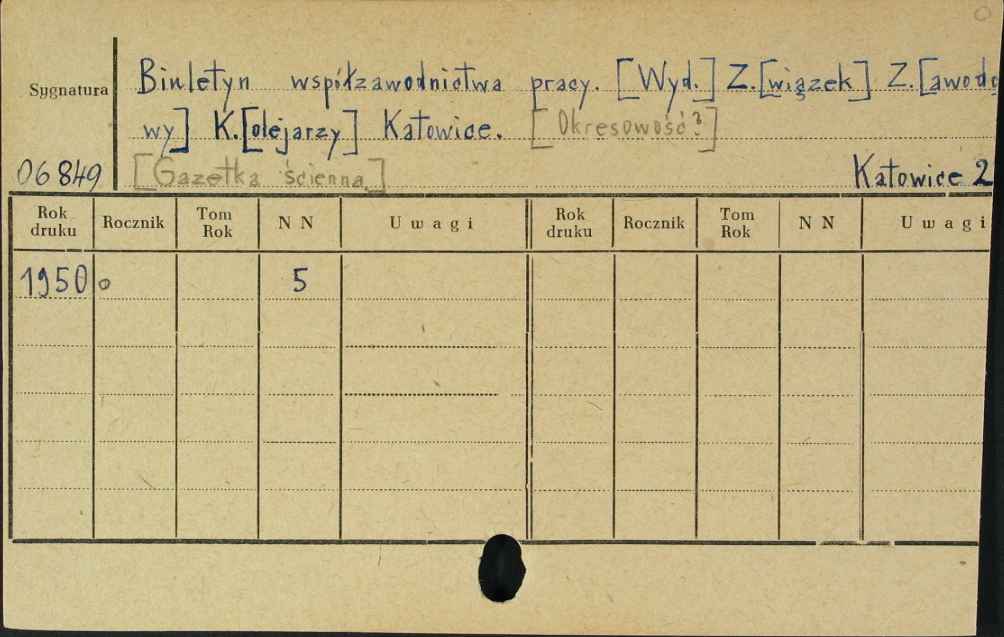 Biuletyn współzawodnictwa pracy. [Wyd.] Z.[wiązek] Z.[awodo
Sygnatura
wy] K.[olejarzy] Katowice. [Okresowość?]
06849 [Gazetka ścienna] Katowice 2
Rok druku Rocznik Tom Rok N N Uwagi Rok druku Rocznik Tom Rok N N Uwagi
1950 o 5